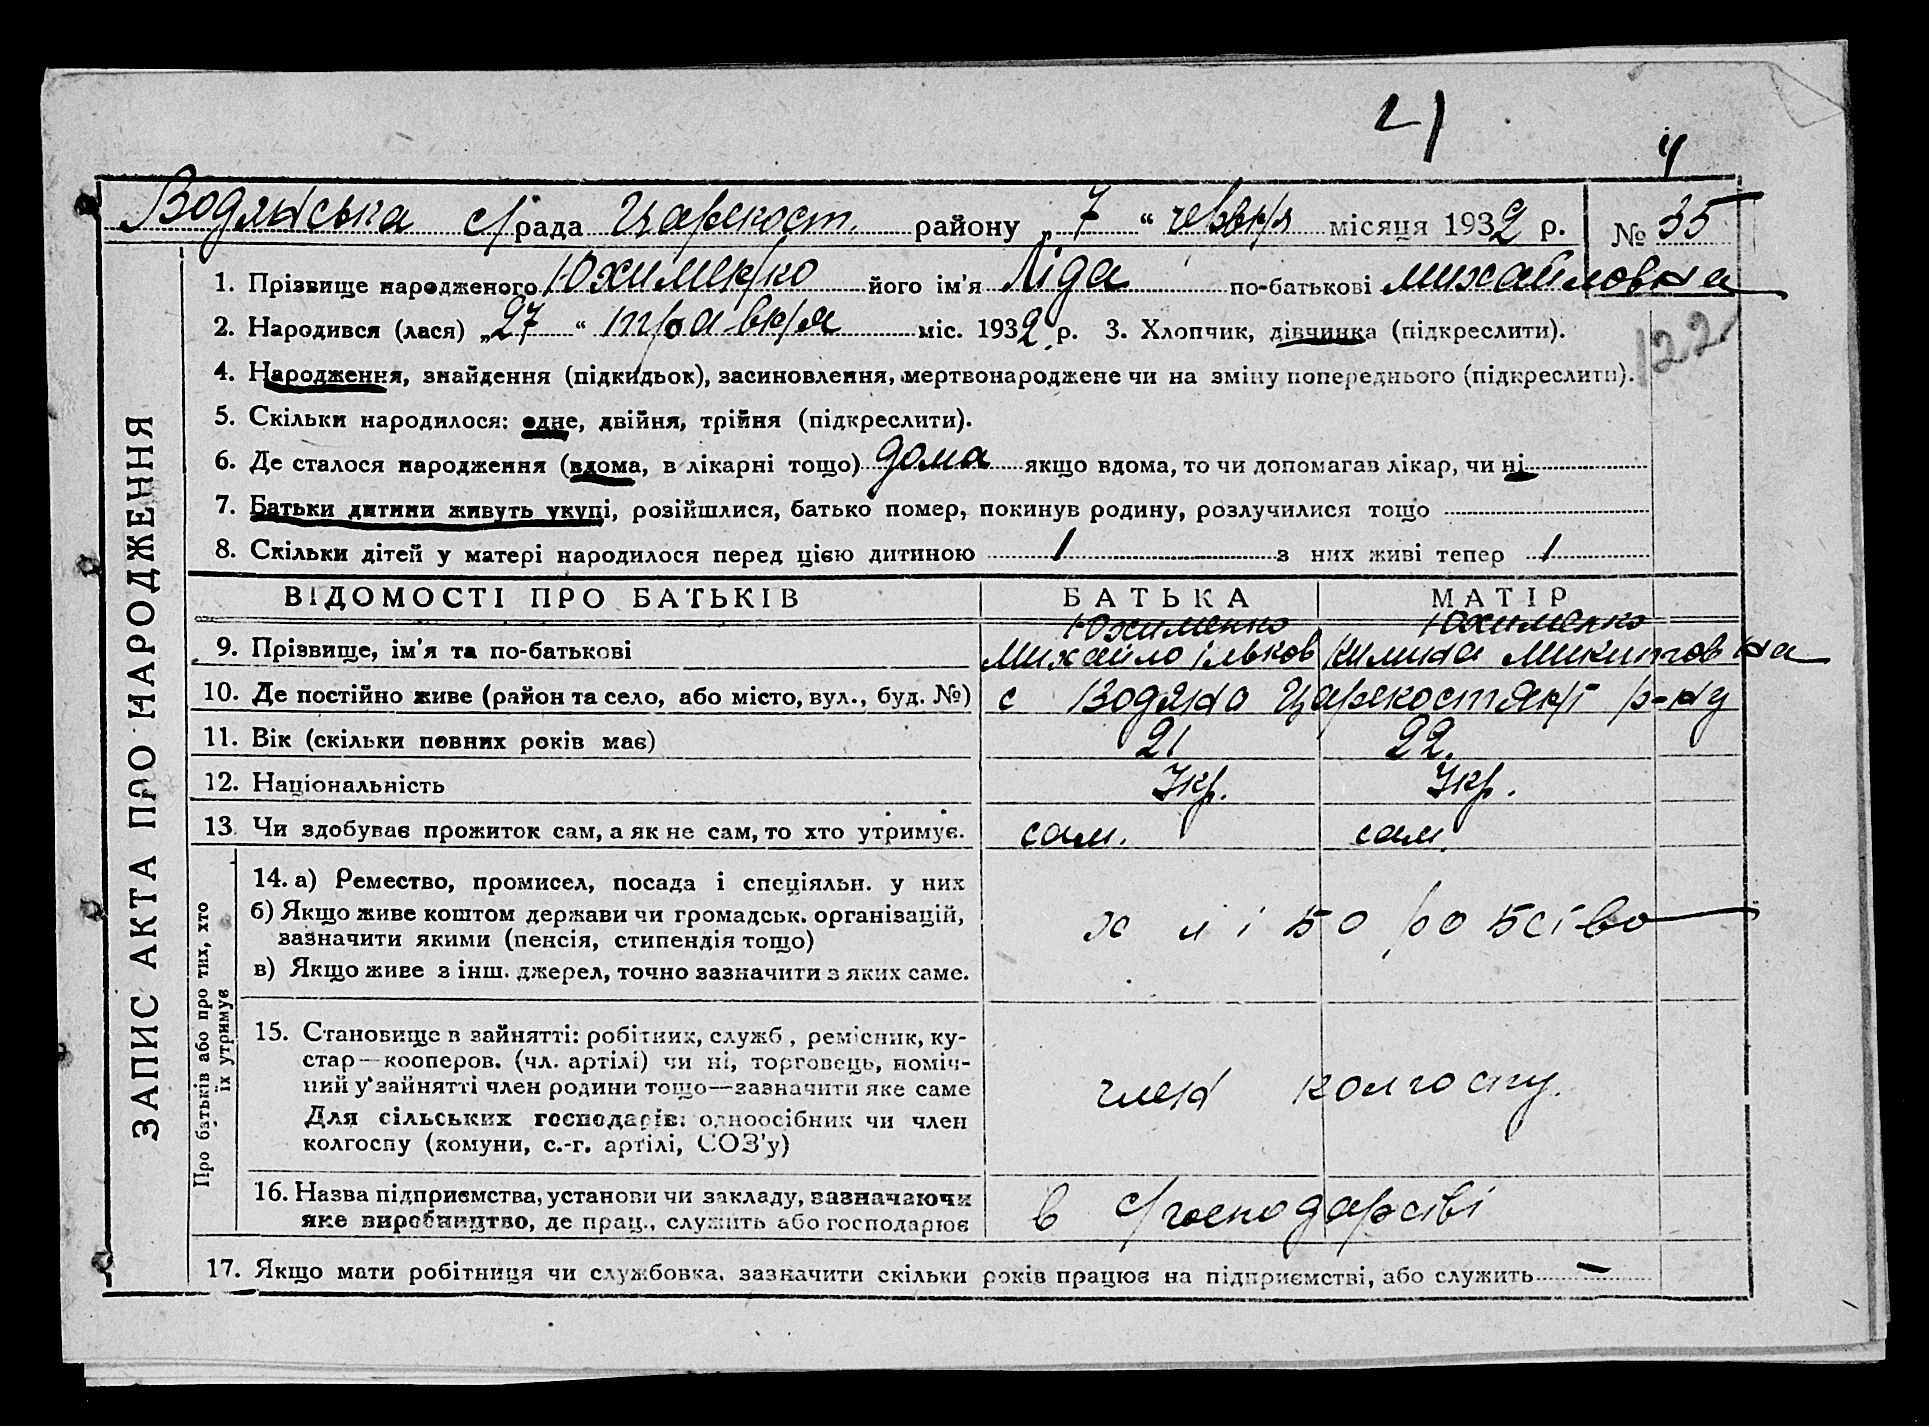 21
4
Водяньська с/рада Царекост. району „7“ червня місяця 1932 р. № 35
1. Прізвище народженого Юхименко його ім'я Ліда по-батькові михайловна
2. Народився (лася) „27“ травня міс. 1932 р. 3. Хлопчик, дівчинка (підкреслити).
122
4. Народження, знайдення (підкидьок), засиновлення, мертвонароджене чи на зміну попереднього (підкреслити).
5. Скільки народилося: одне, двійня, трійня (підкреслити).
6. Де сталося народження (вдома, в лікарні тощо) дома якщо вдома, то чи допомагав лікар, чи ні
7. Батьки дитини живуть укупі, розійшлися, батько помер, покинув родину, розлучилися тощо
8. Скільки дітей у матері народилося перед цією дитиною 1 з них живі тепер 1
ЗАПИС АКТА ПРО НАРОДЖЕННЯ
ВІДОМОСТІ ПРО БАТЬКІВ БАТЬКА МАТІР
Юхименко Юхименко
9. Прізвище, ім'я та по-батькові михайло ільков Килина микитовна
10. Де постійно живе (район та село, або місто, вул., буд. №) с Водяно р-ну
11. Вік (скільки повних років має) 21 22.
12. Національність Укр. Укр.
13. Чи здобував прожиток сам, а як не сам, то хто утримує. сам. сам.
Про батьків або про тих, хто
їх утримує
14. а) Ремество, промисел, посада і спеціяльн. у них
б) Якщо живе коштом держави чи громадськ. організацій,
зазначити якими (пенсія, стипендія тощо)
хліборобство
в) Якщо живе з інш. джерел, точно зазначити з яких саме.
15. Становище в зайнятті: робітник, служб, ремісник, ку-
стар—кооперов. (чл. артілі) чи ні, торговець, поміч-
ний у зайнятті член родини тощо—зазначити яке саме
член колгоспу.
Для сільських господарів: одноосібник чи член
колгоспу (комуни, с.-г. артілі, СОЗ'у)
16. Назва підприємства, установи чи закладу, зазначаючи
яке виробництво, де прац., служить або господарює
в с/господарстві
17. Якщо мати робітниця чи службовка, зазначити скільки років працює на підприємстві, або служить —